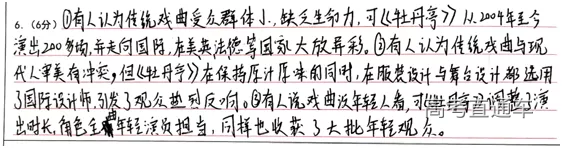 6.(6分)①有人认为传统戏曲受众群体小,缺乏生命力,可《牡丹亭》从2004年至今
演出200多场,并走向国际,在美英法德等国家大放异彩。②有人认为传统戏曲与现
代人审美有冲突,但《牡丹亭》在保持原汁原味的同时,在服装设计与舞台设计都选用
了国际设计师,引发了观众热烈反响。③有人说戏曲没年轻人看,可《牡丹亭》调整了演
出时长,角色全由年轻演员担当,同样也收获了大批年轻观众。
高考直通车